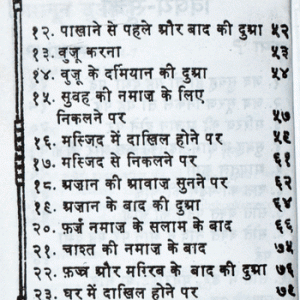 १२. पाखाने से पहले और बाद की दुआ ५२
१३. वुज़ू करना ५३
१४. वुज़ू के दर्मियान की दुआ ५४
१५. सुबह की नमाज़ के लिए
निकलने पर ५७
१६. मस्जिद में दाखिल होने पर ५९
१७. मस्जिद से निकलने पर ६१
१८. अज़ान की आवाज़ सुनने पर ६२
१९. अज़ान के बाद की दुआ ६४
२०. फ़र्ज़ नमाज़ के सलाम के बाद ६६
२१. चाश्त की नमाज़ के बाद ७५
२२. फ़ज्र और मग़रिब के बाद की दुआ ७६
२३. घर में दाखिल होने पर ७८